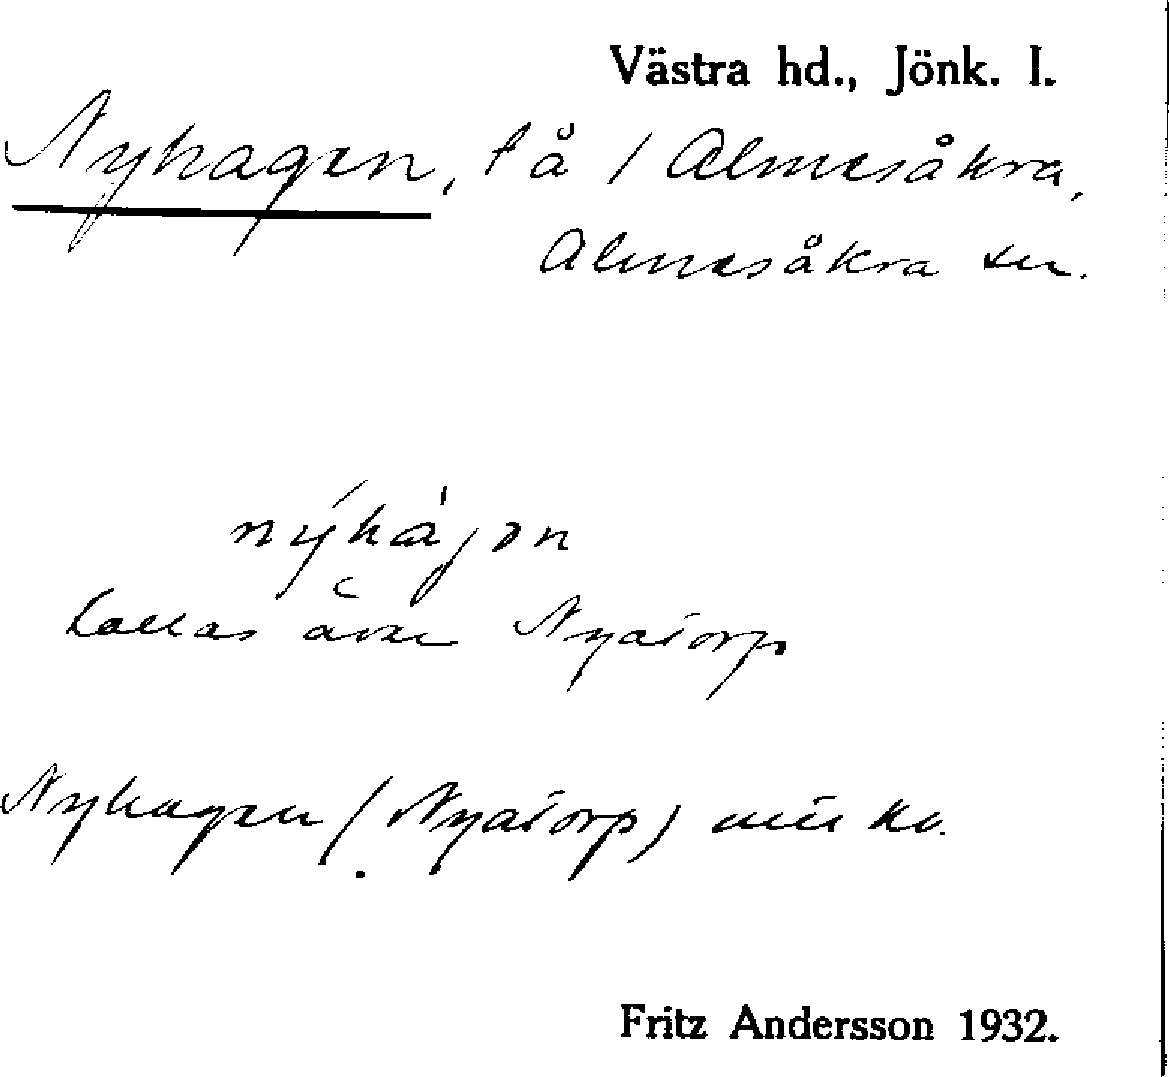 Västra hd., Jönk. l.
Nyhagen, lå / Almesåkra,
Almesåkra sn.
nýhàjən
kallas även Nyatorp
Nyhagen (Nyatorp)
Fritz Andersson 1932.